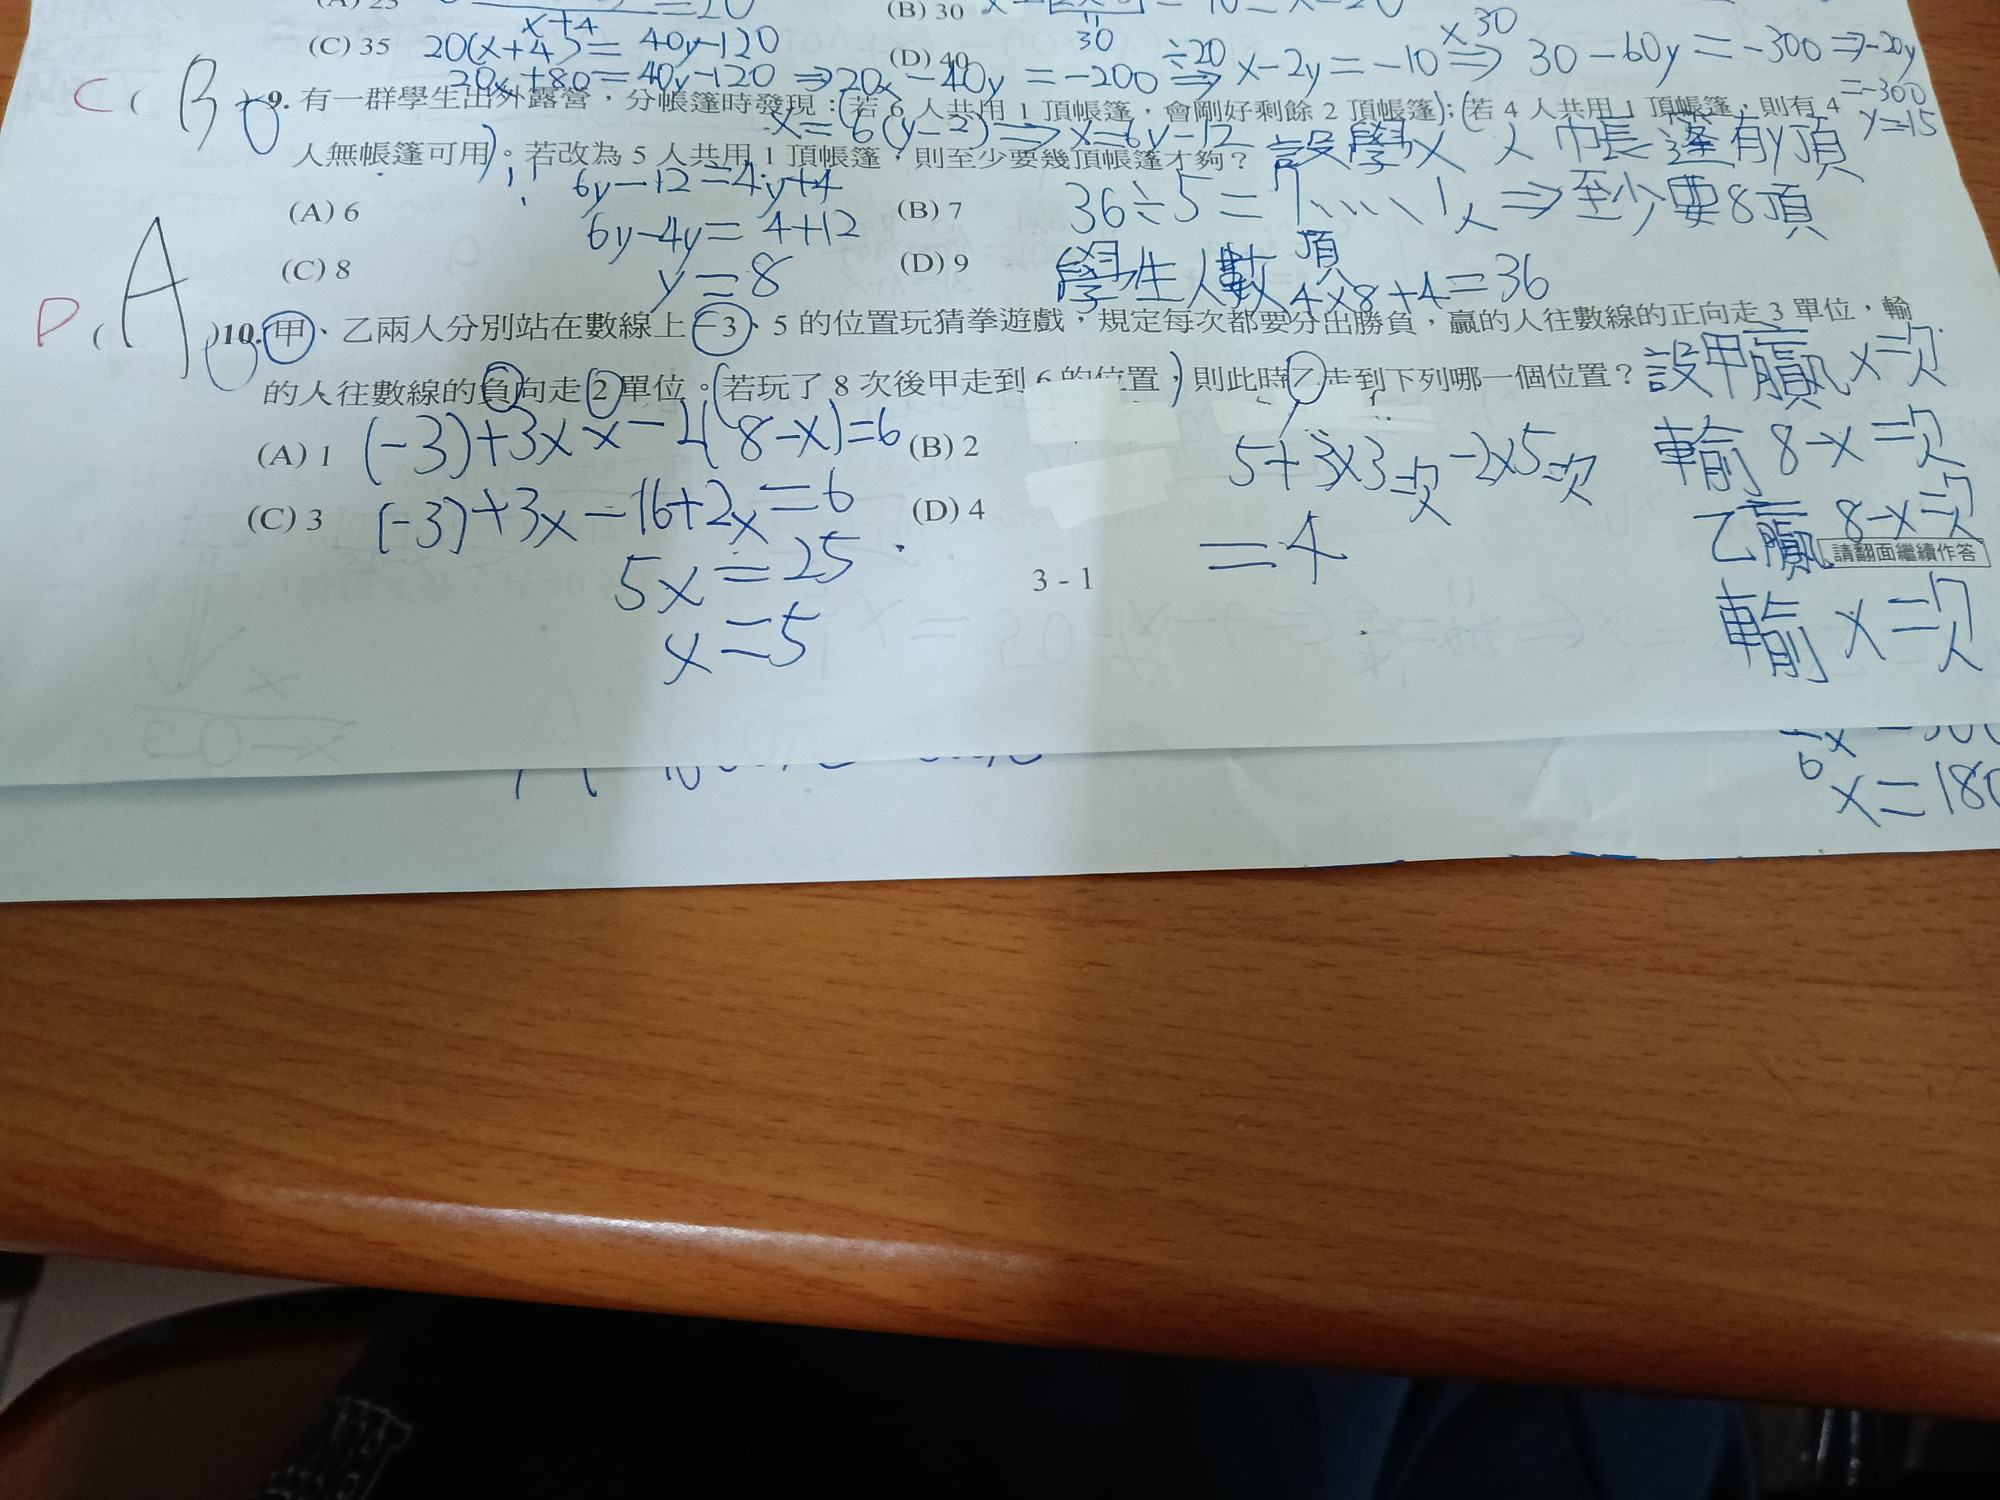 (C) 35
20(x+4)=40y-120
30
÷20
x30
20x+80=40y-120 ⇒ 20x-40y=-200 ⇒ x-2y=-10 ⇒ 30-60y=-300 ⇒ -20y
(D) 40
=-300
y=15
C ( B )9. 有一群學生出外露營，分帳篷時發現：(若 6 人共用 1 頂帳篷，會剛好剩餘 2 頂帳篷)；(若 4 人共用 1 頂帳篷，則有 4
x=6(y-2)⇒x=6y-12 設學 x 人 帳篷有y頂
人無帳篷可用)。若改為 5 人共用 1 頂帳篷，則至少要幾頂帳篷才夠？
6y-12=4y+4
(A) 6
(B) 7
36÷5=7......1人⇒至少要8頂
6y-4y=4+12
(C) 8
y=8
(D) 9
學生人數 4x8頂+4=36
D ( A )10. 甲、乙兩人分別站在數線上 -3、5 的位置玩猜拳遊戲，規定每次都要分出勝負，贏的人往數線的正向走 3 單位，輸
的人往數線的負向走 2 單位。(若玩了 8 次後甲走到 6 的位置)，則此時乙走到下列哪一個位置？
設甲贏 x 次
(A) 1
(-3)+3x x-2(8-x)=6
(B) 2
5+3x3次-2x5次
輸 8-x 次
(C) 3
(-3)+3x-16+2x=6
(D) 4
=4
乙贏 8-x次
5x=25
3 - 1
請翻面繼續作答
x=5
輸 x 次
x=180